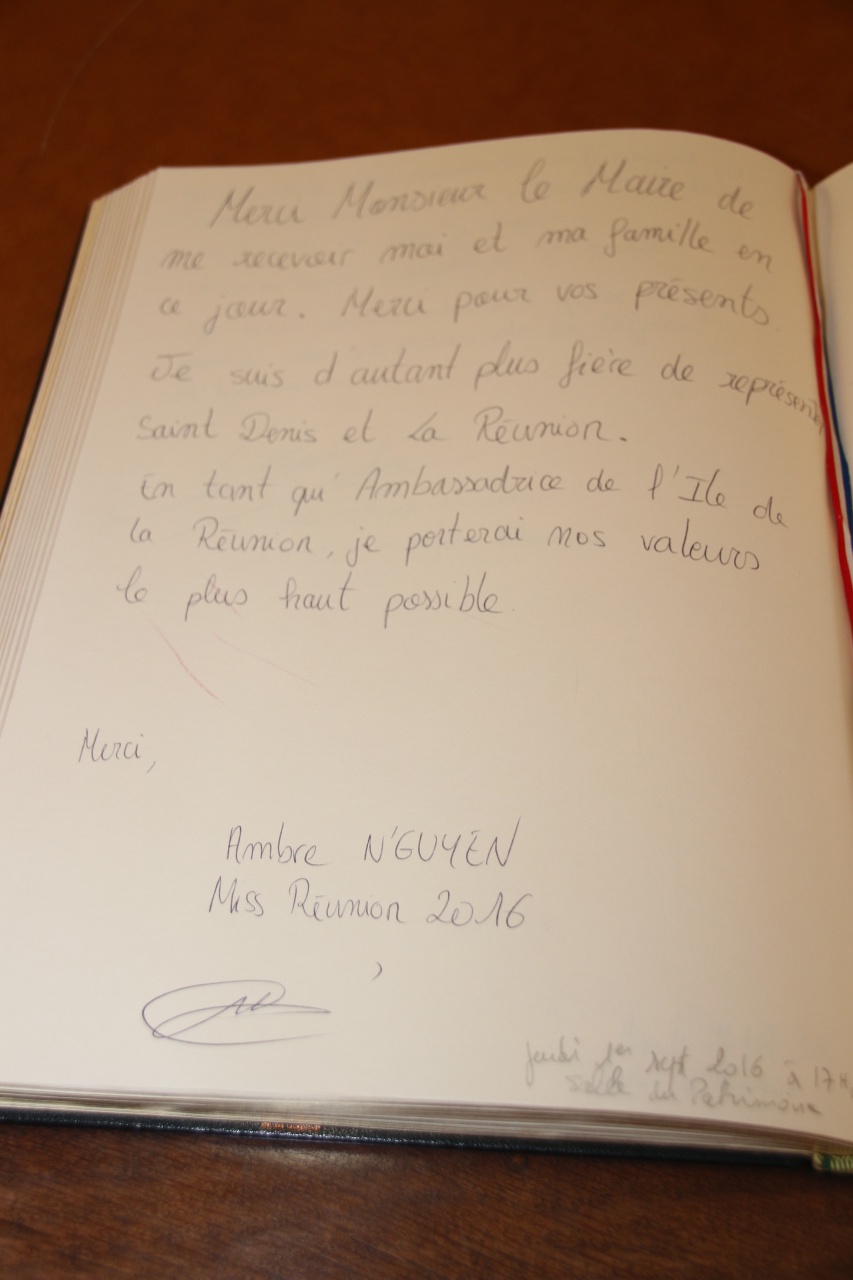 Merci Monsieur le Maire de
me recevoir moi et ma famille en
ce jour. Merci pour vos présents
Je suis d'autant plus fière de représenter
Saint Denis et La Réunion.
En tant qu'Ambassadrice de l'Ile de
la Réunion, je porterai nos valeurs
le plus haut possible.
Merci,
Ambre N'GUYEN
Miss Réunion 2016
jeudi 1er sept 2016 à 17H
Salle du Patrimoine